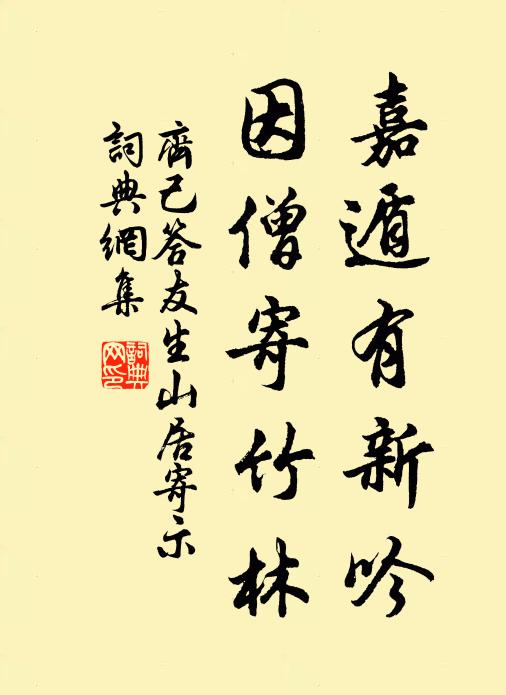 嘉遁有新吟
因僧寄竹林
齊己答友生山居寄示
詞典網集
詞典
网印